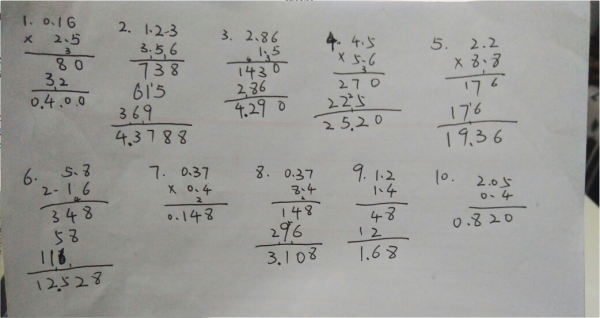 1. 0.16
× 2.5
3
80
32
0.4.0.0
2. 1.2-3
3.5.6
738
615
369
4.3788
3. 2.86
1.5
1430
286
4.290
4. 4.5
× 5.6
3
270
225
25.20
5. 2.2
× 8.8
176
176
19.36
6. 5.8
2-16
348
58
116
12.528
7. 0.37
× 0.4
2
0.148
8. 0.37
8.4
148
296
3.108
9. 1.2
1.4
48
12
1.68
10. 2.05
0.4
0.820